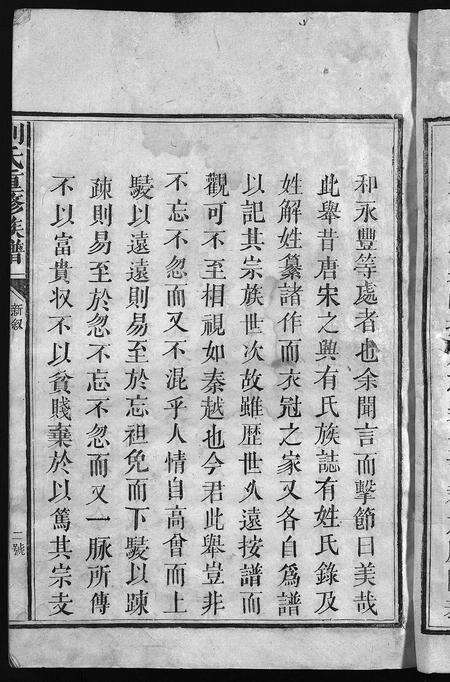 和永豐等處者也余聞言而擊節曰美哉
此舉昔唐宋之興有氏族誌有姓氏錄及
姓解姓纂諸作而衣冠之家又各自爲譜
以記其宗族世次故雖歷世久遠按譜而
觀可不至相視如秦越也今君此舉豈非
不忘不忽而又不混乎人情自高曾而上
駸以遠遠則易至於忘袒免而下駸以踈
踈則易至於忽不忘不忽而又一脉所傳
不以富貴收不以貧賤棄於以篤其宗支
劉氏重修族譜
新叙
二號